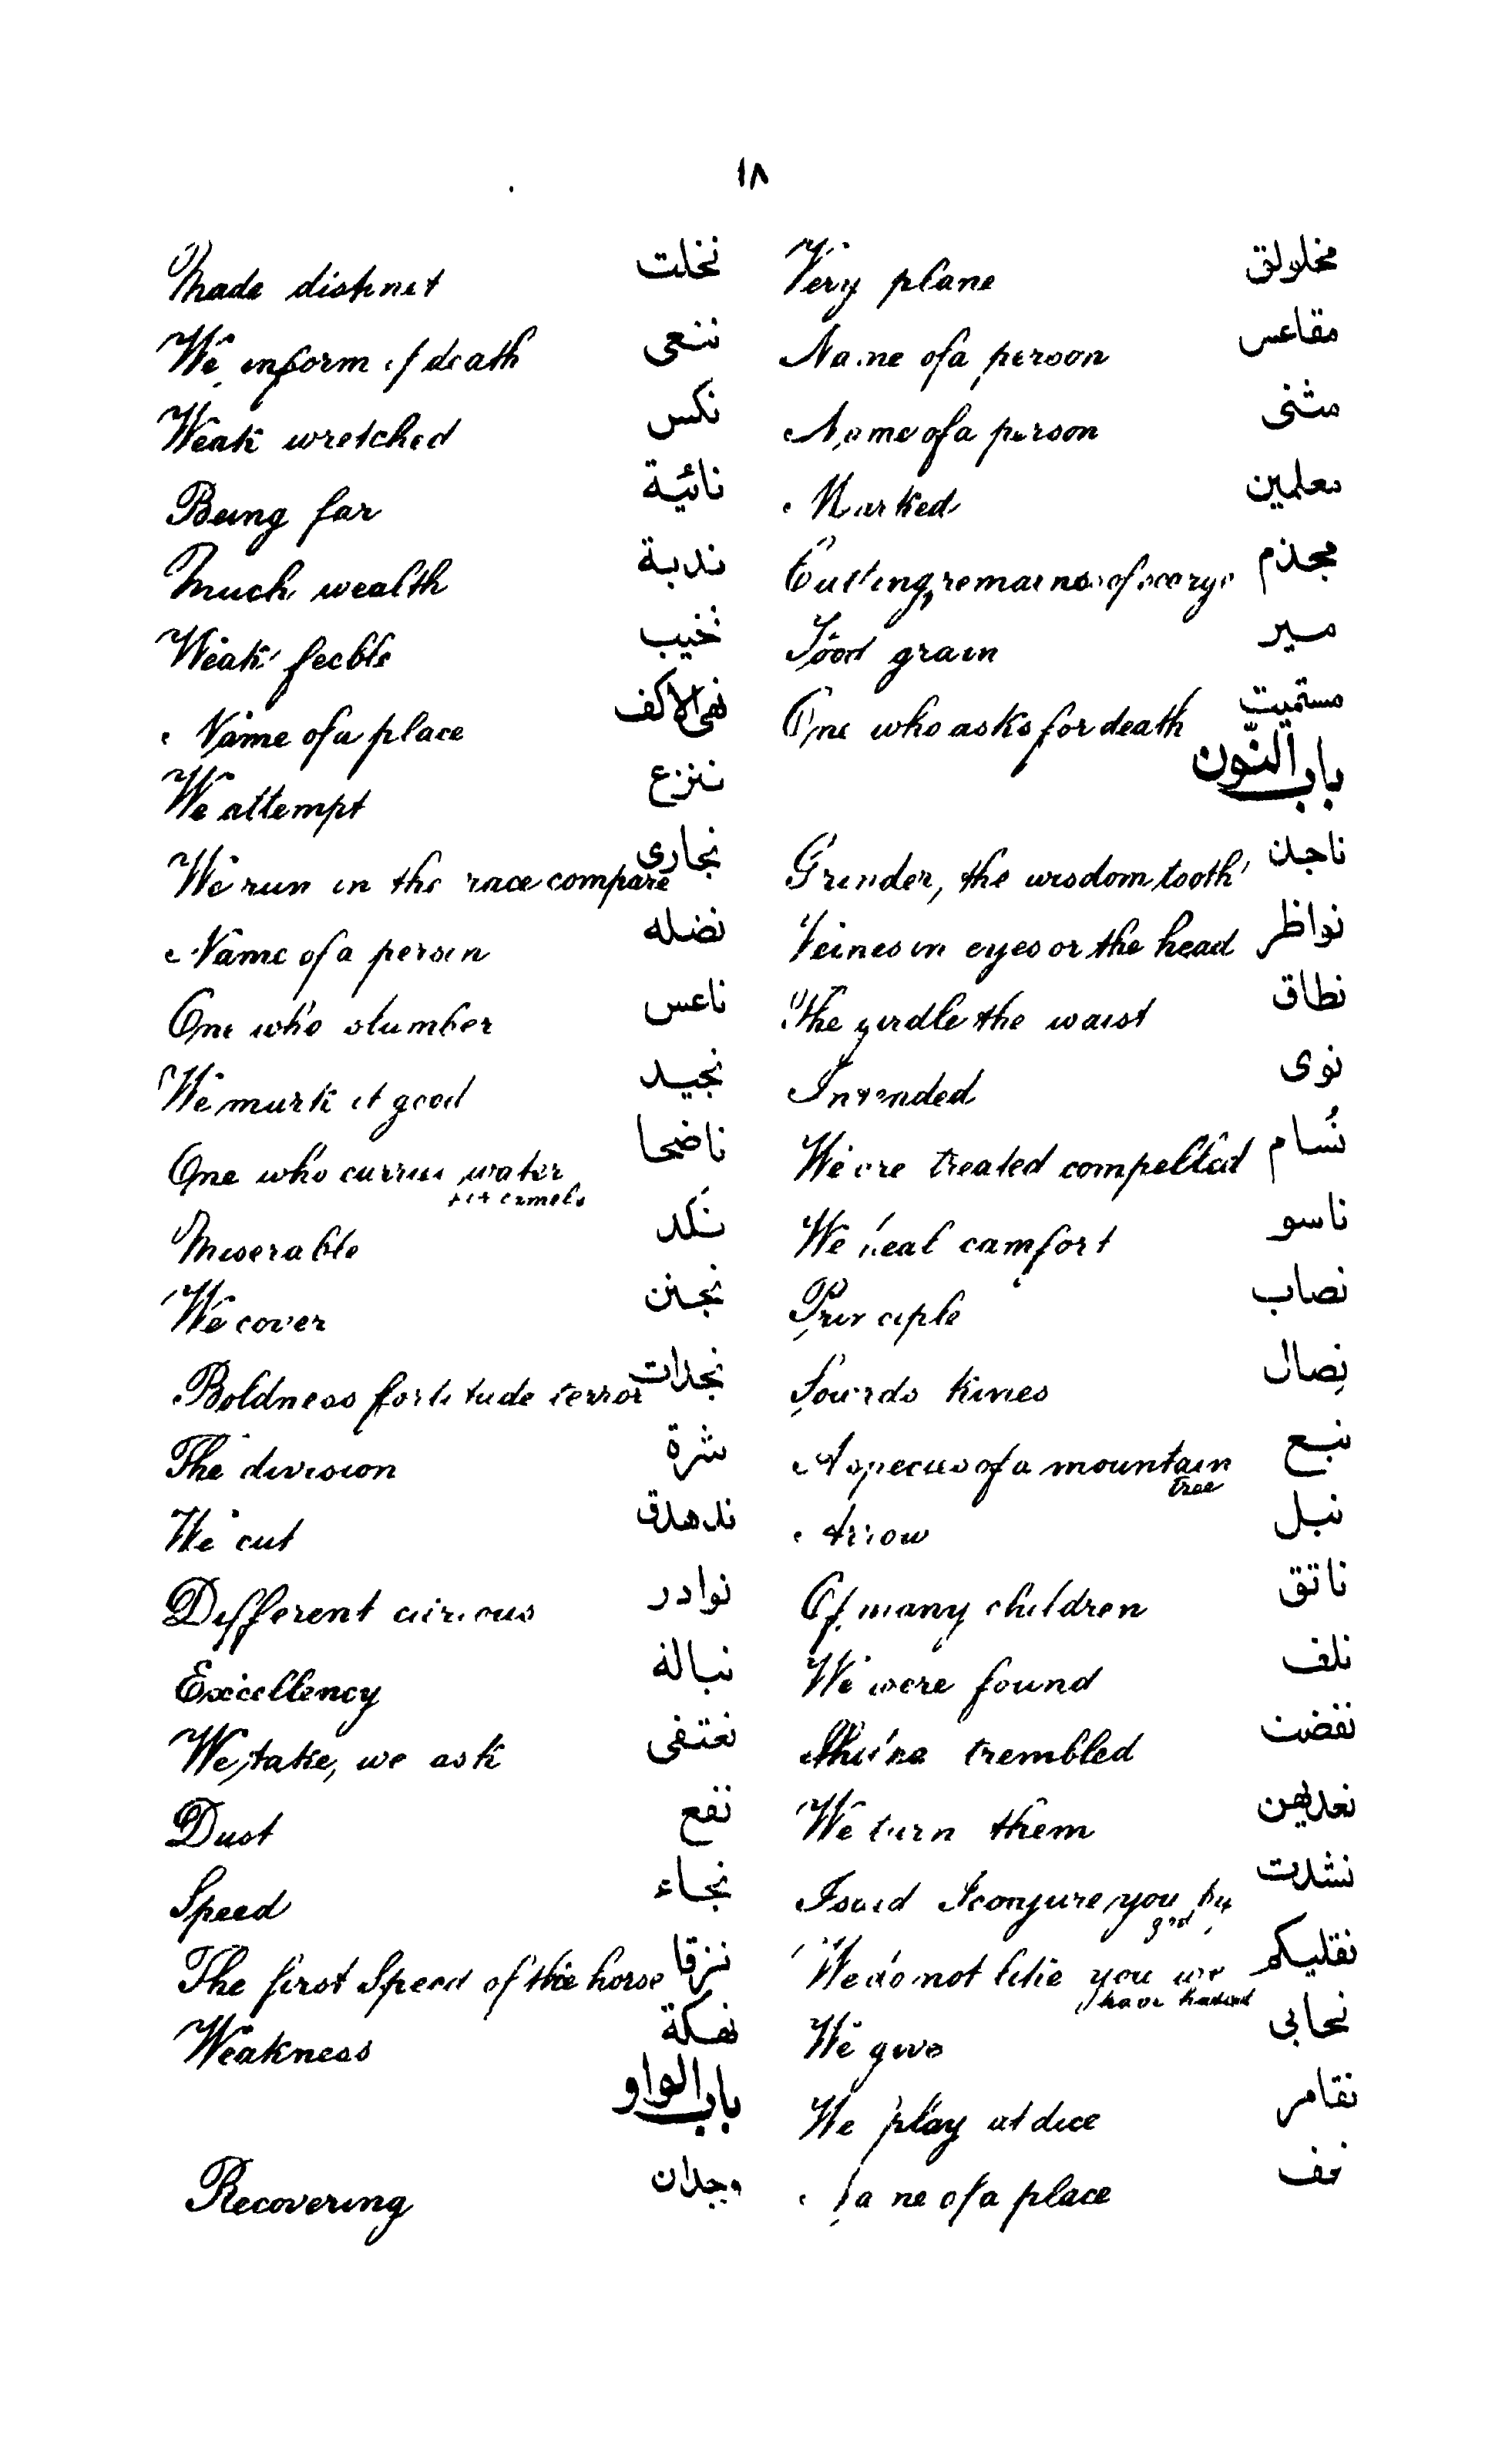 ١٨
مخلولق Very plane
مقاعس Name of a person
مثنى Name of a person
معلمين Marked
مجذم Cutting, remains of
مير Food grain
مستميت One who asks for death
باب النّون
ناجذ Grinder, the wisdom tooth
نواظر Veines in eyes or the head
نطاق The girdle the waist
نوى Intended
نُسام We are treated compelled
ناسو We heal camfort
نصاب Principle
نِصال Swords knives
نبع A species of a mountain
tree
نبل Arrow
ناتق Of many children
نلف We were found
نفضت trembled
نعديهن We turn them
نشدت I said I conjure you by
god
نقليكم We do not like you we
have hated
نحابى We give
نقامر We play at dice
نخف Name of a place
نخلت Made distinct
ننعى We inform of death
نكس Weak wretched
نائية Being far
ندبة Much wealth
نخيب Weak feeble
نهى الاكف Name of a place
ننزع We attempt
نجارى We run in the race compare
نضله Name of a person
ناعس One who slumber
نجيد We mark it good
ناضحا One who carries water
camels
نَكد Miserable
نجنن We cover
نجدات Boldness fortitude terror
نثرة The division
ندهدق We cut
نوادر Different curious
نبالة Excellency
نعتفى We take, we ask
نقع Dust
نجاء Speed
نزقا The first Speed of the horse
نهكة Weakness
باب الواو
وجدان Recovering